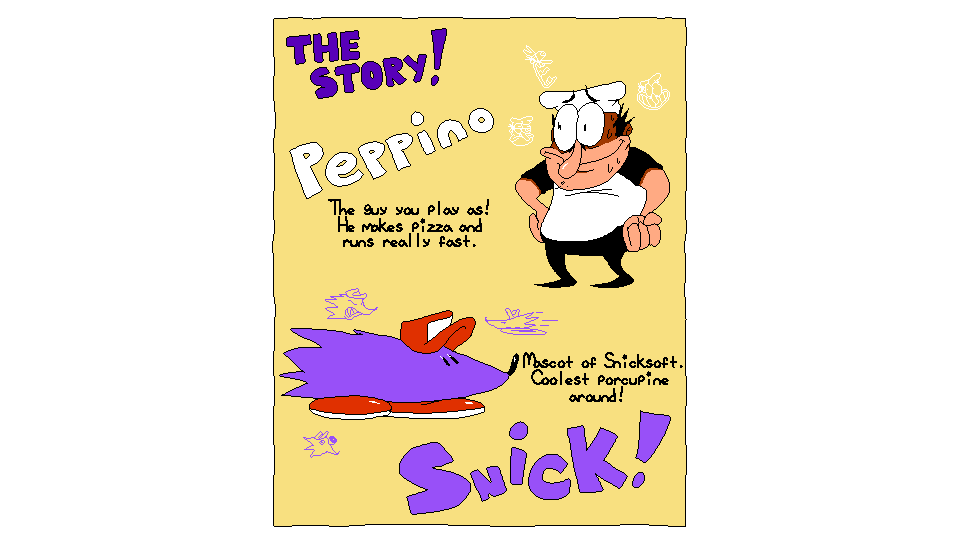 THE
STORY!
Peppino
The guy you play as!
He makes pizza and
runs really fast.
Mascot of Snicksoft.
Coolest porcupine
around!
SNiCK!